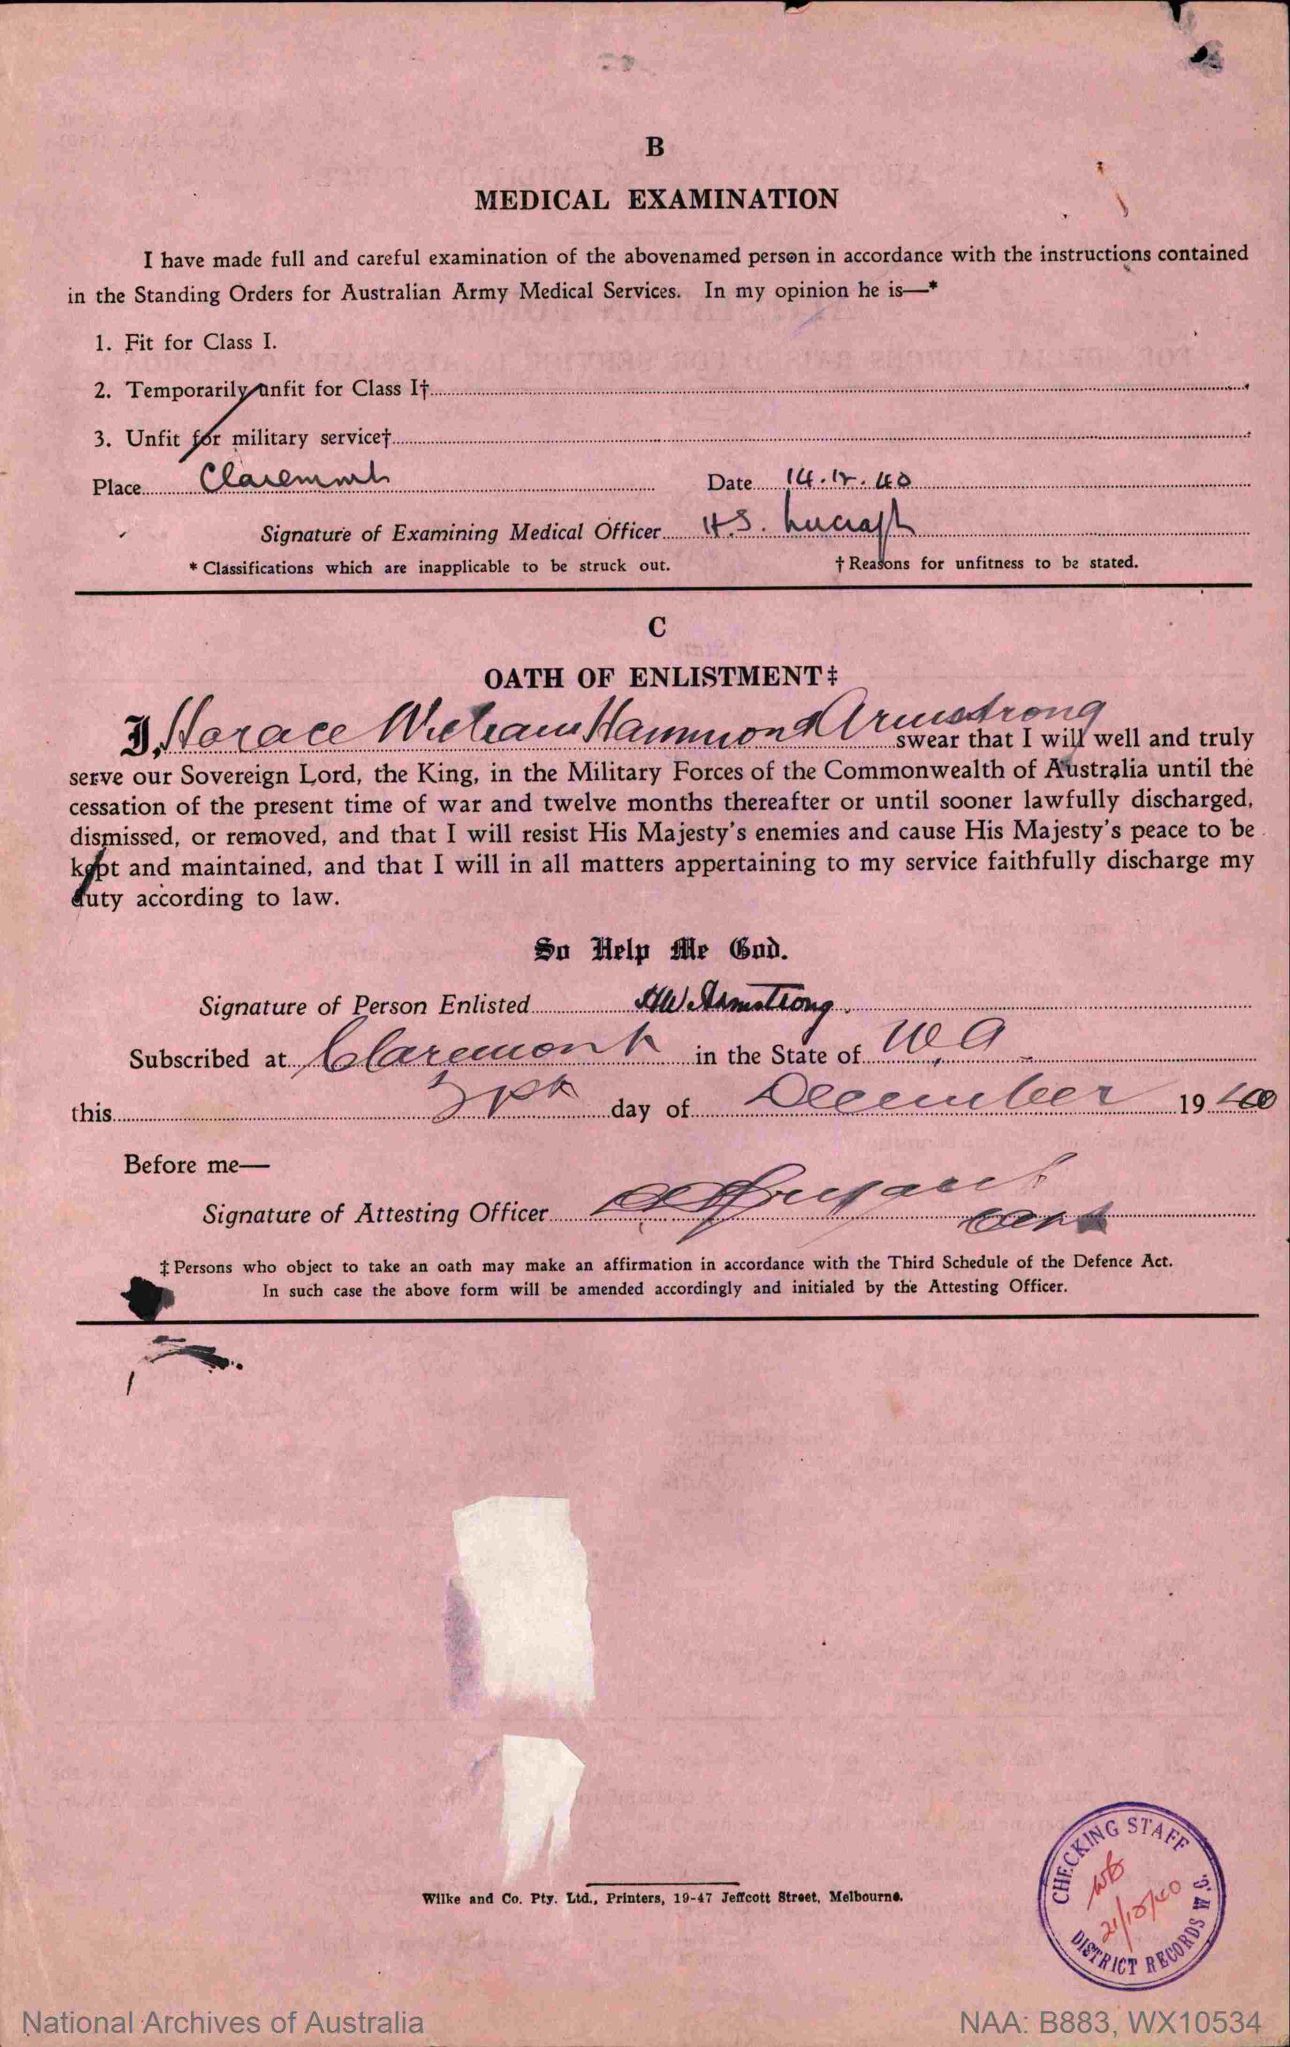 B
MEDICAL EXAMINATION
I have made full and careful examination of the abovenamed person in accordance with the instructions contained
in the Standing Orders for Australian Army Medical Services. In my opinion he is—*
1. Fit for Class I.
2. Temporarily unfit for Class I†
3. Unfit for military service†
Place Claremont Date 14.12.40
Signature of Examining Medical Officer H.S. Lucraft
* Classifications which are inapplicable to be struck out. † Reasons for unfitness to be stated.
C
OATH OF ENLISTMENT‡
I, Horace William Hammond Armstrong swear that I will well and truly
serve our Sovereign Lord, the King, in the Military Forces of the Commonwealth of Australia until the
cessation of the present time of war and twelve months thereafter or until sooner lawfully discharged,
dismissed, or removed, and that I will resist His Majesty's enemies and cause His Majesty's peace to be
kept and maintained, and that I will in all matters appertaining to my service faithfully discharge my
duty according to law.
So Help Me God.
Signature of Person Enlisted HW Armstrong.
Subscribed at Claremont in the State of W.A.
this day of December 1940
Before me—
Signature of Attesting Officer
‡ Persons who object to take an oath may make an affirmation in accordance with the Third Schedule of the Defence Act.
In such case the above form will be amended accordingly and initialed by the Attesting Officer.
Wilke and Co. Pty. Ltd., Printers, 19-47 Jeffcott Street, Melbourne.
CHECKING STAFF
21/12/40
DISTRICT RECORDS W.C.
National Archives of Australia NAA: B883, WX10534